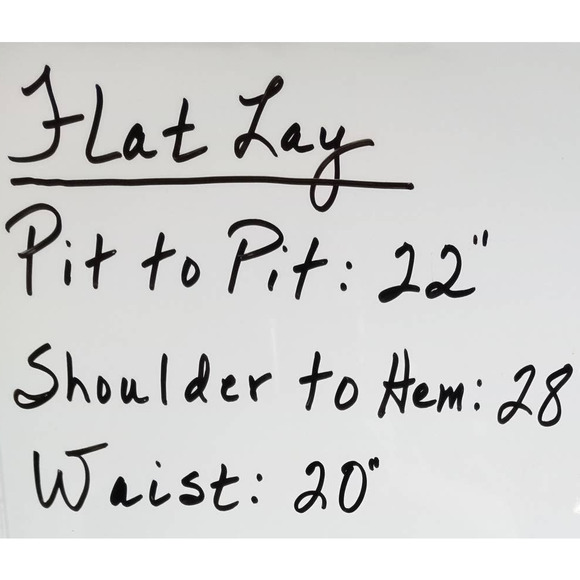 Flat Lay
Pit to Pit: 22"
Shoulder to Hem: 28
Waist: 20"